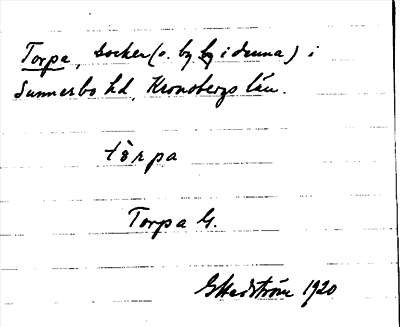 Torpa, socken (o. by i denna) i
Sunnerbo hd, Kronobergs län.
tòrpa
Torpa G.
GHedström 1920